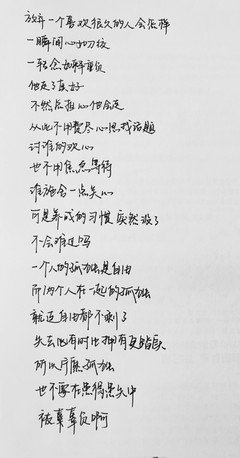 放弃一个喜欢很久的人会怎样
一瞬间心如刀绞
一转念如释重负
他走了真好
不然总担心他会走
从此不用费尽心思找话题
讨谁的欢心
也不用焦虑等待
谁施舍一点关心
可是养成的习惯突然没了
不会难过吗
一个人的孤独是自由
而两个人在一起的孤独
就连自由都不剩了
失去他有时比拥有更踏实
所以宁愿孤独
也不要在患得患失中
被辜负啊